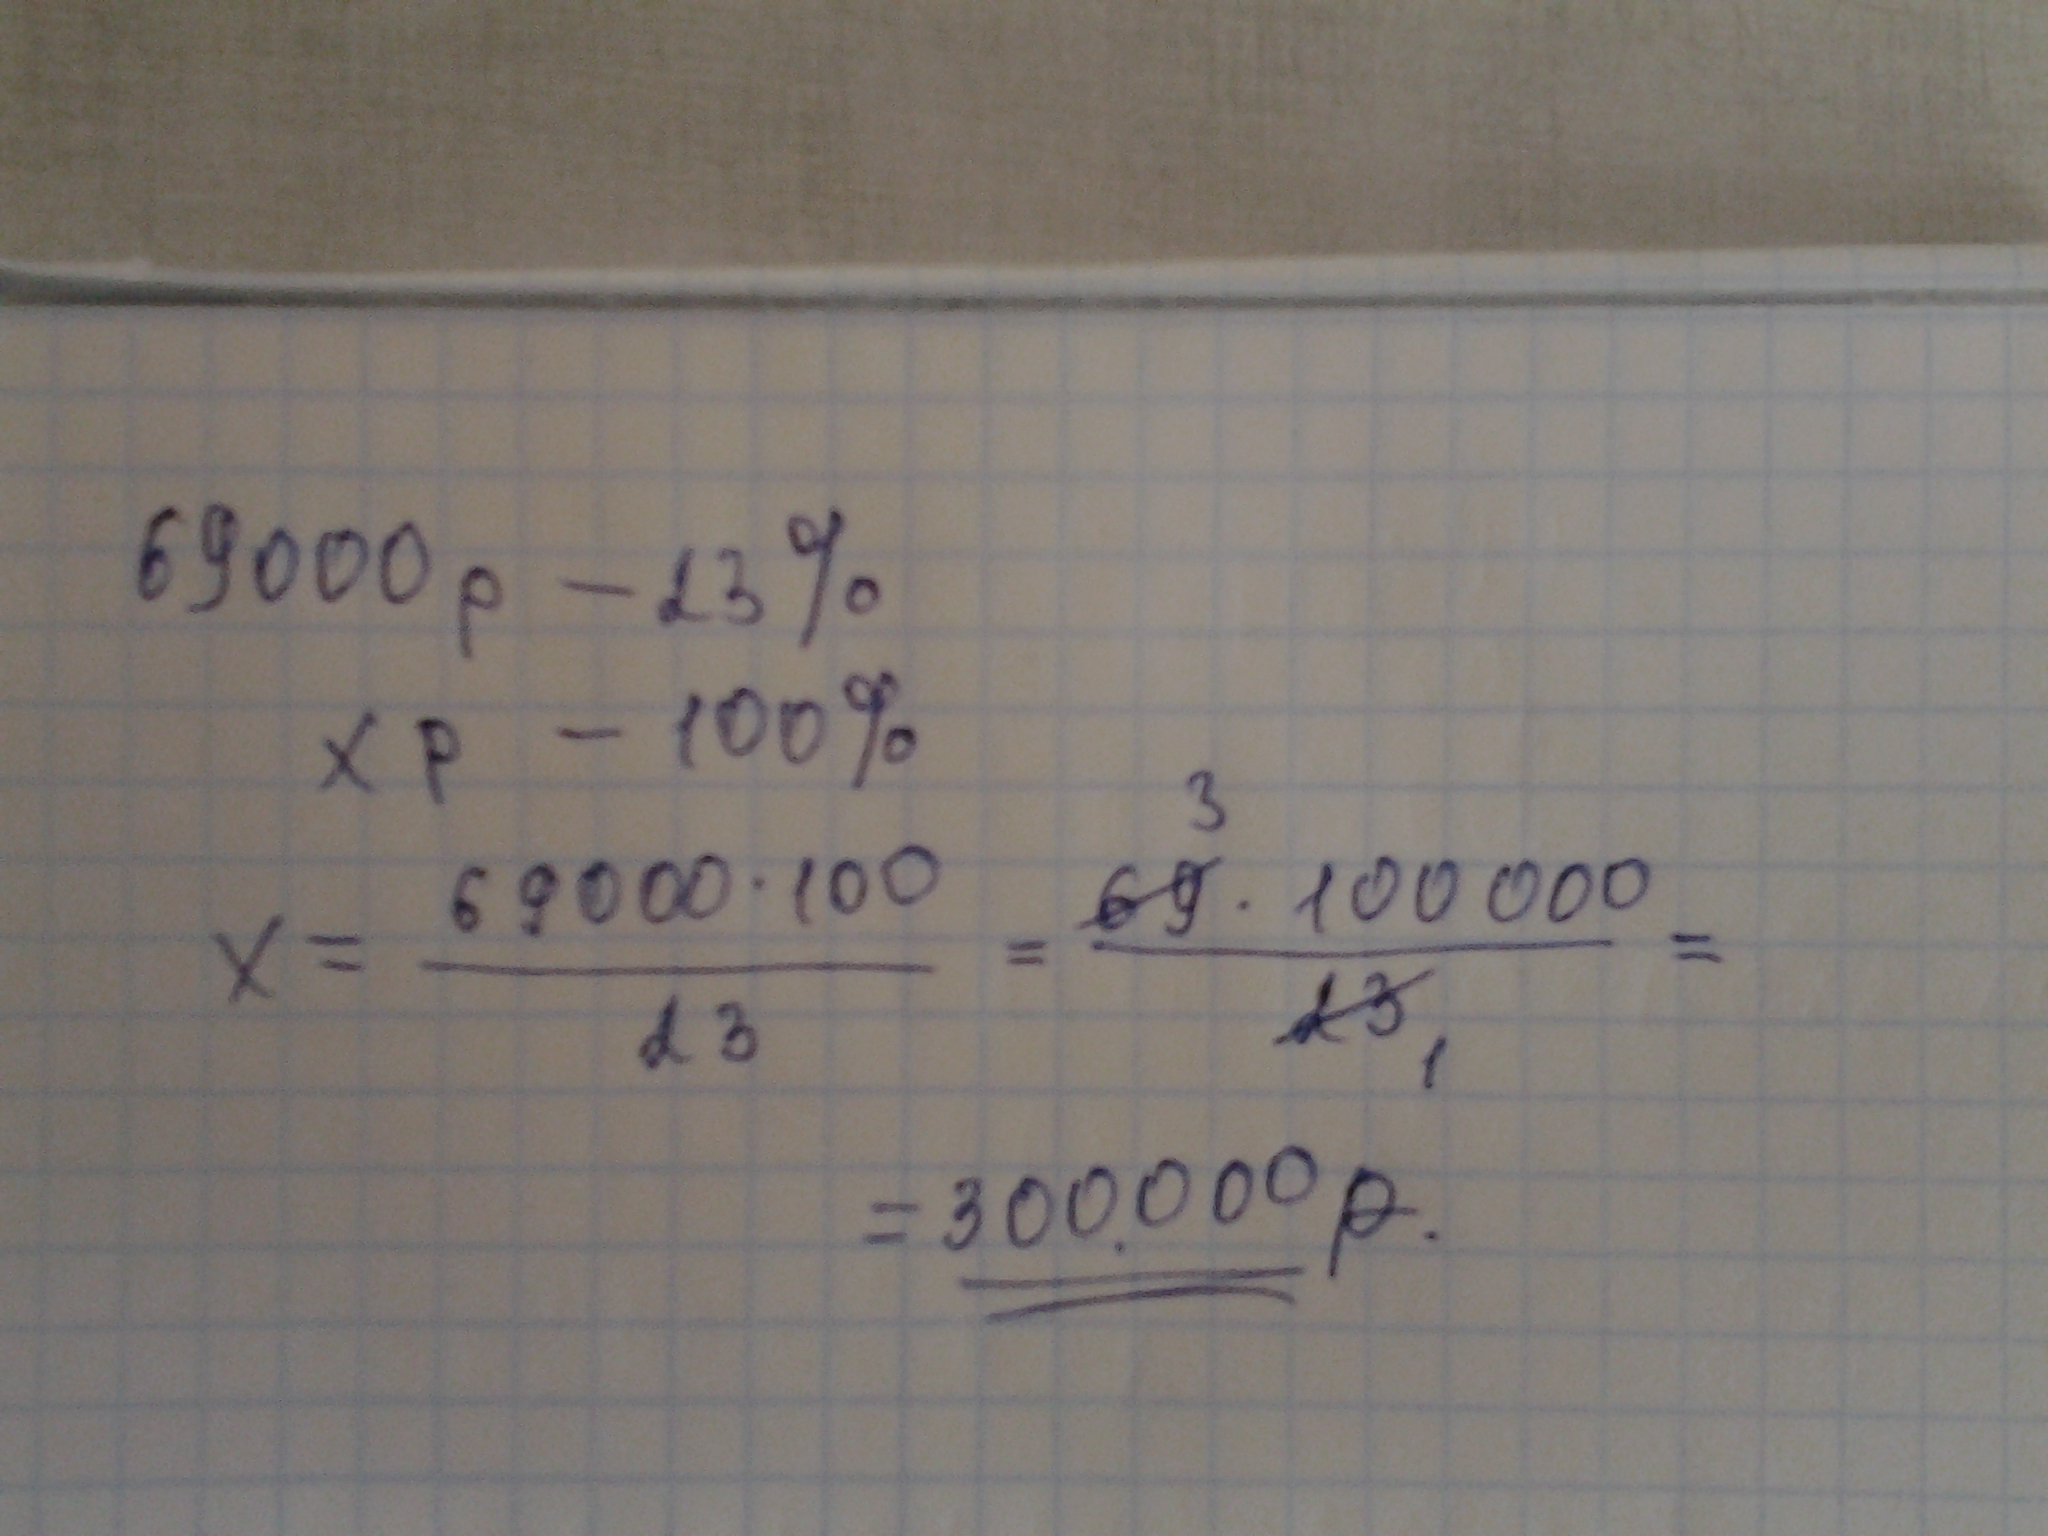 69000р – 23%
х р – 100%
х = 69000·100 / 23 = 69 3 · 100 000 / 23 1 =
= 300.000 р.